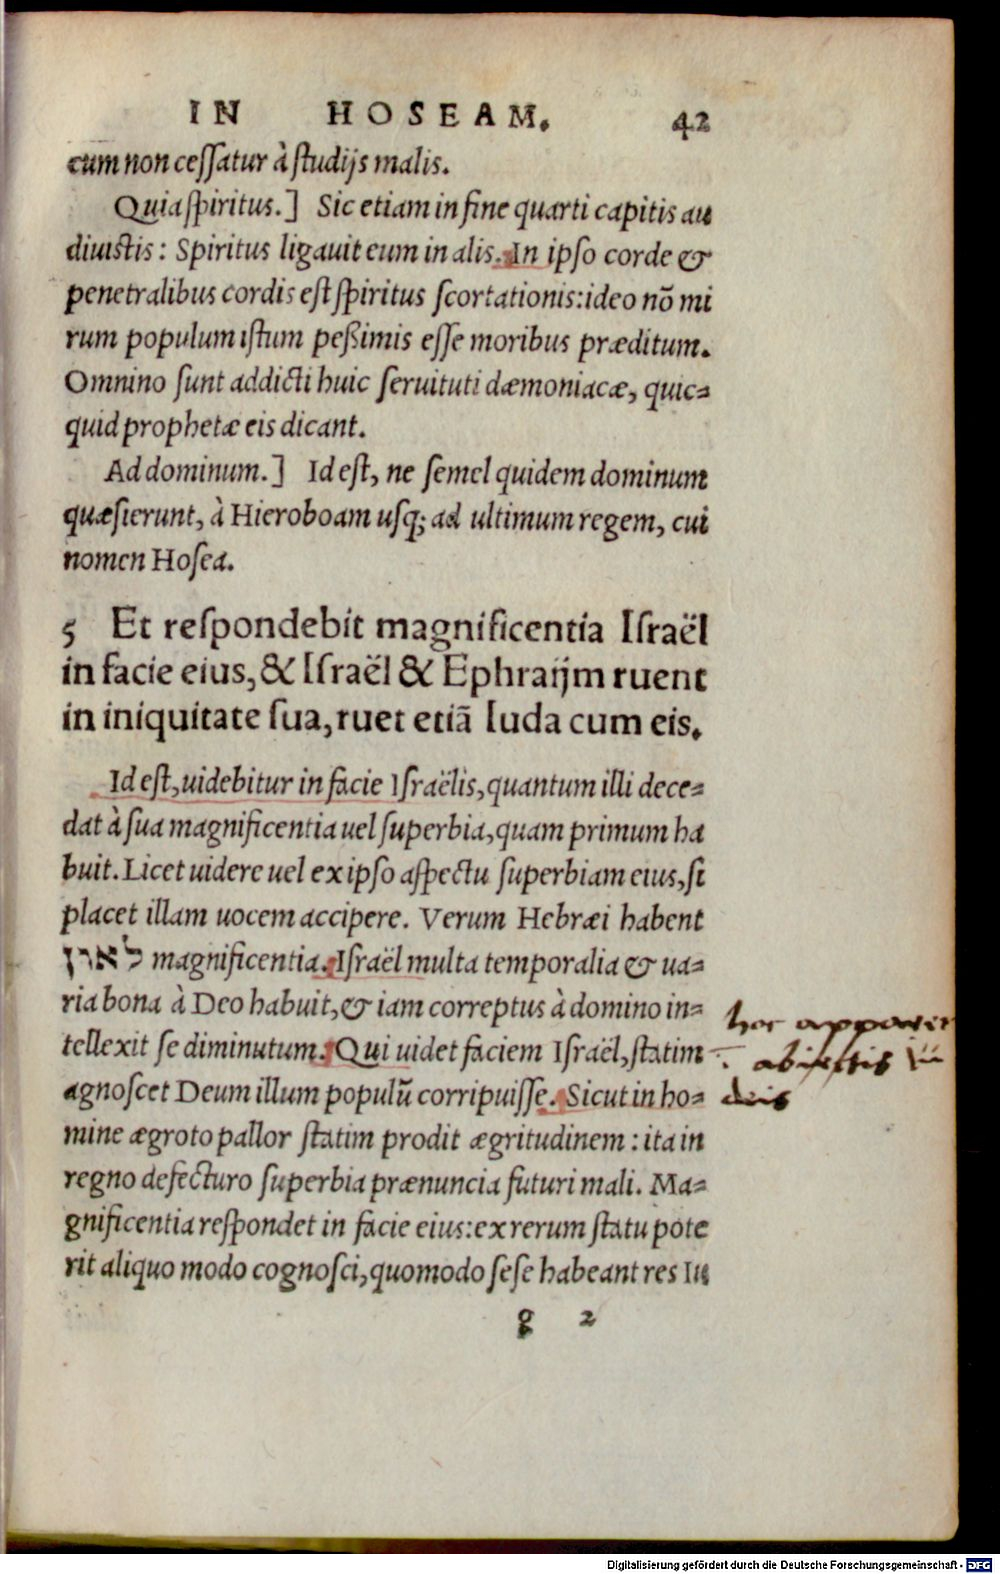 IN HOSEAM. 42
cum non ceſſatur à ſtudijs malis.
Quia ſpiritus.] Sic etiam in fine quarti capitis au
diuiſtis: Spiritus ligauit eum in alis. In ipſo corde &
penetralibus cordis eſt ſpiritus ſcortationis: ideo nō mi
rum populum iſtum peßimis eſſe moribus præditum.
Omnino ſunt addicti huic ſeruituti dæmoniacæ, quic=
quid prophetæ eis dicant.
Ad dominum.] Id eſt, ne ſemel quidem dominum
quæſierunt, à Hieroboam uſq; ad ultimum regem, cui
nomen Hoſea.
5 Et reſpondebit magnificentia Iſraël
in facie eius, & Iſraël & Ephraijm ruent
in iniquitate ſua, ruet etiā Iuda cum eis.
Id eſt, uidebitur in facie Iſraëlis, quantum illi dece=
dat à ſua magnificentia uel ſuperbia, quam primum ha
buit. Licet uidere uel ex ipſo aſpectu ſuperbiam eius, ſi
placet illam uocem accipere. Verum Hebræi habent
לארן magnificentia. Iſraël multa temporalia & ua=
ria bona à Deo habuit, & iam correptus à domino in=
tellexit ſe diminutum. Qui uidet faciem Iſraël, ſtatim
agnoſcet Deum illum populū corripuiſſe. Sicut in ho=
mine ægroto pallor ſtatim prodit ægritudinem: ita in
regno defecturo ſuperbia prænuncia futuri mali. Ma=
gnificentia reſpondet in facie eius: ex rerum ſtatu pote
rit aliquo modo cognoſci, quomodo ſeſe habeant res Iu
g 2
hoc apparet
abiectis Iu
deis
Digitalisierung gefördert durch die Deutsche Forschungsgemeinschaft - DFG